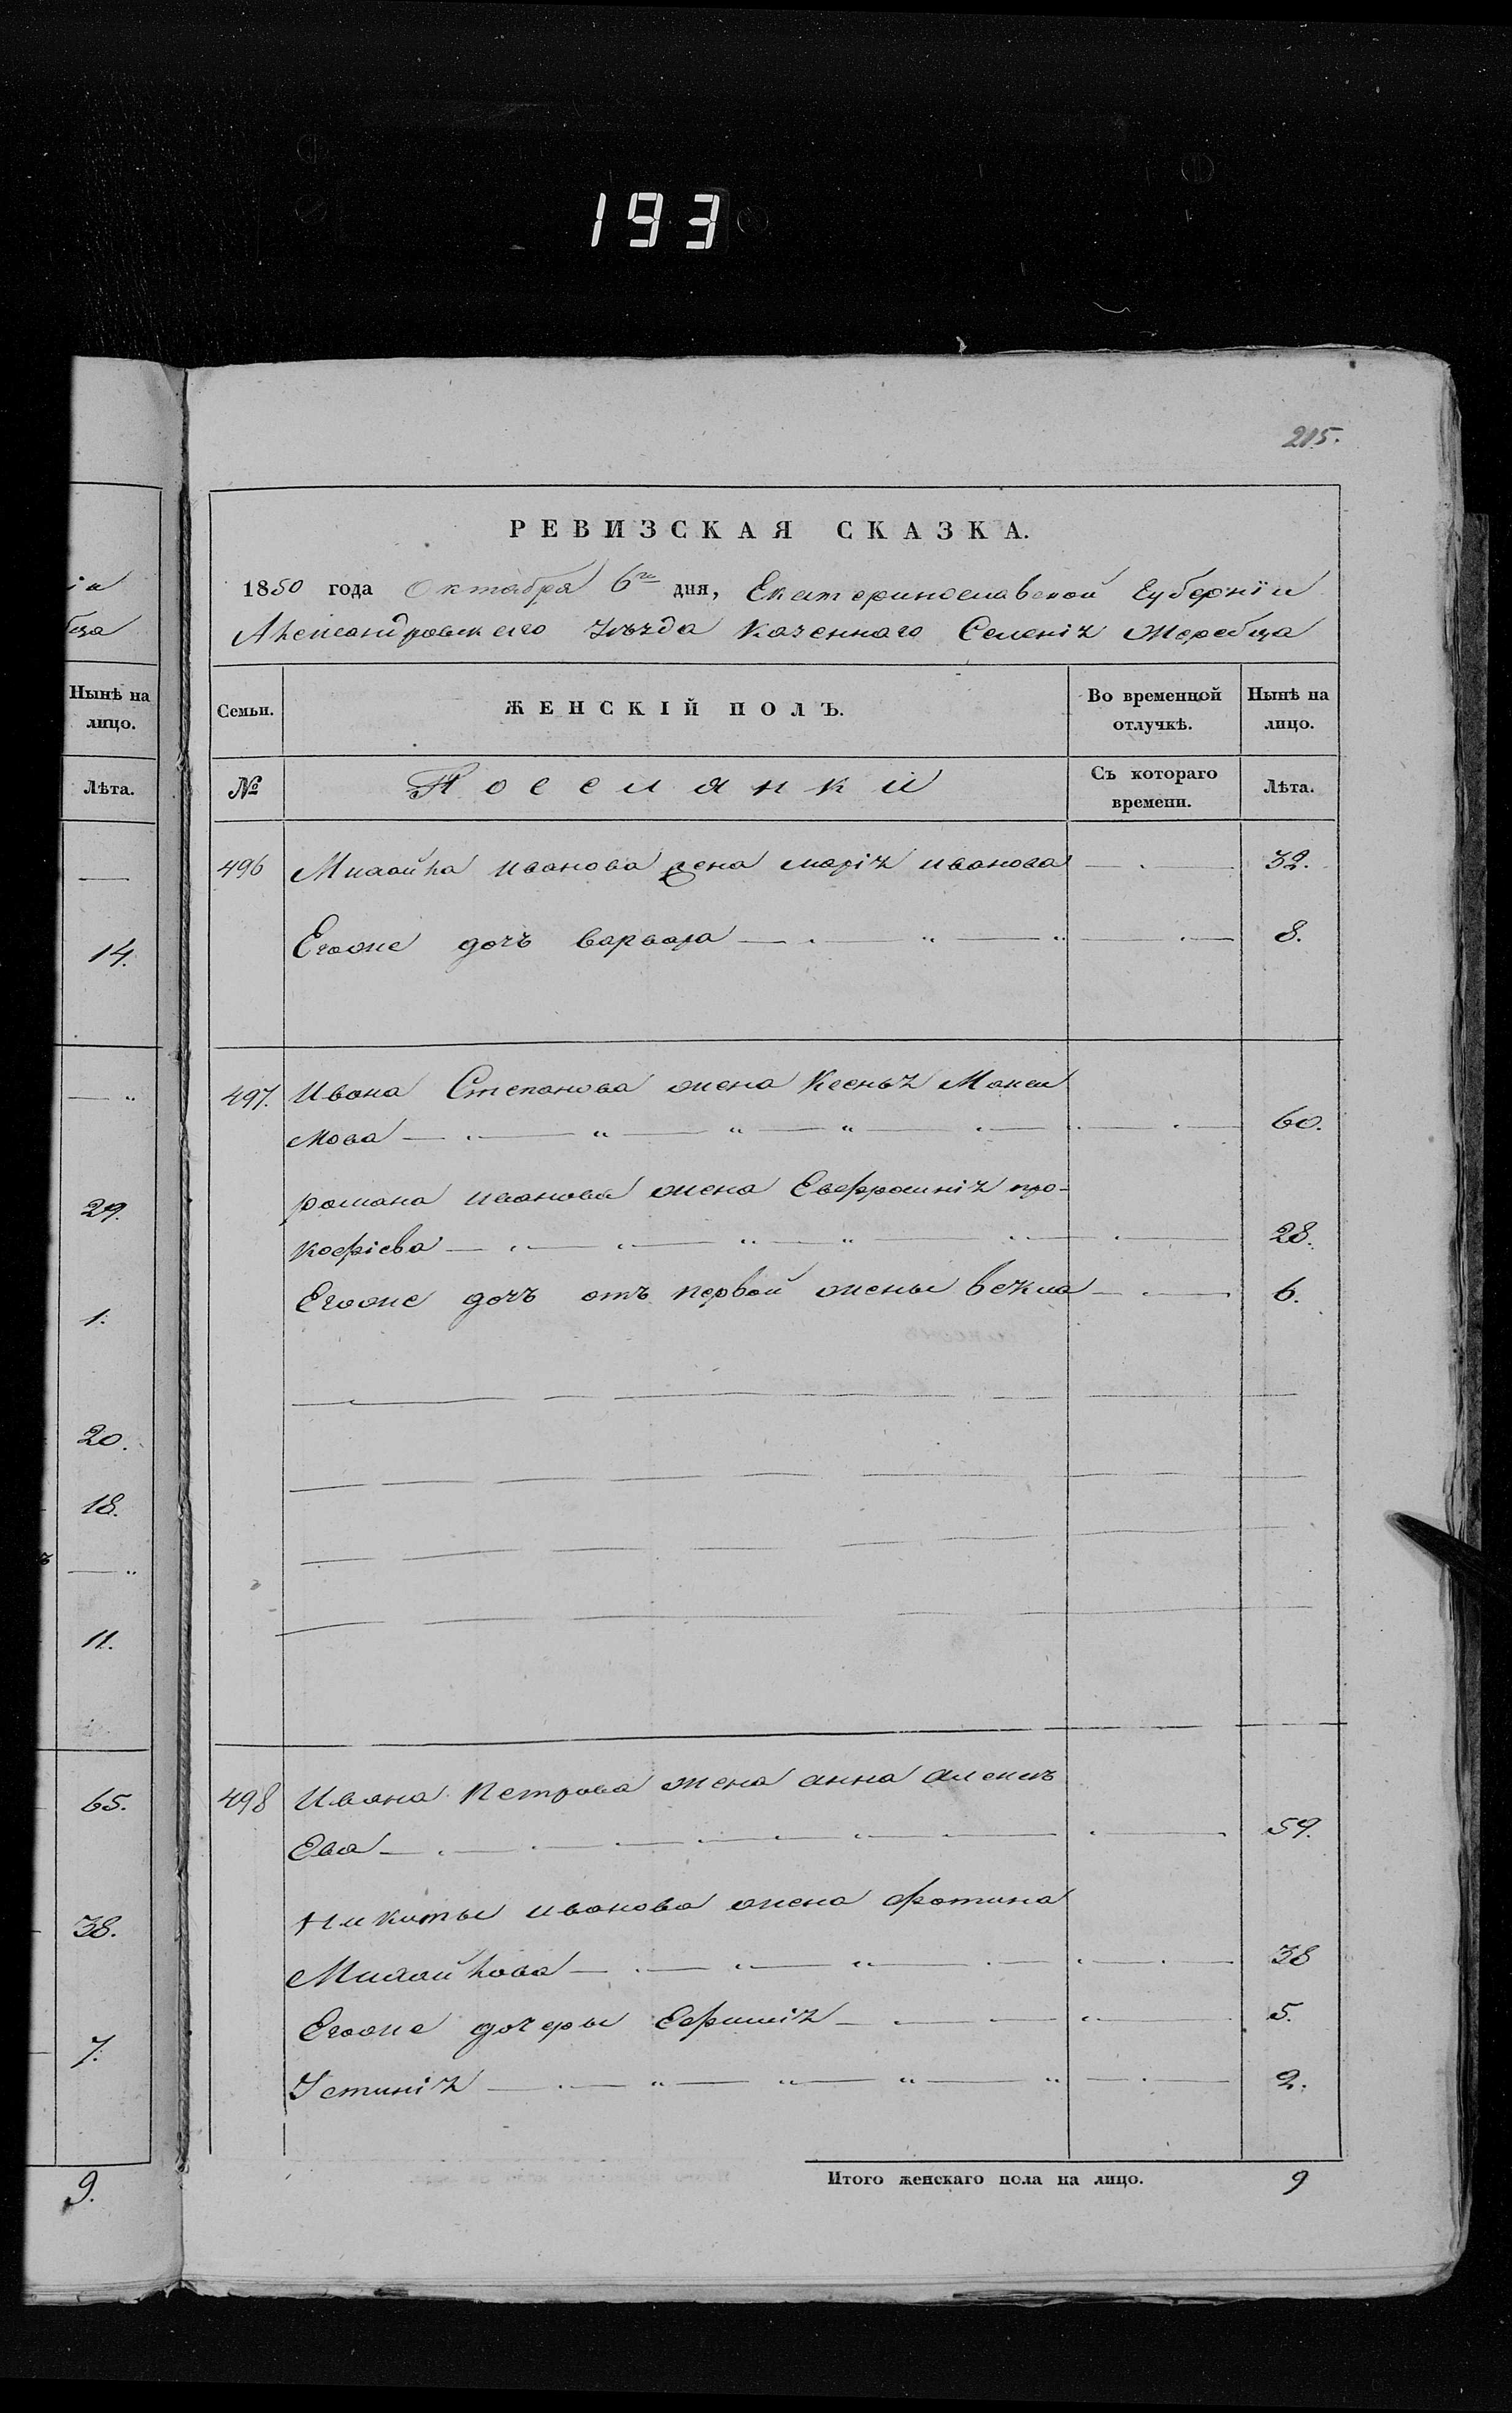 193
215.
РЕВИЗСКАЯ СКАЗКА.
1850 года Октября 6го дня, Екатеринославской Губерніи
Александровскаго Уѣзда Казеннаго Селенія Жеребца
іи
бца
Нынѣ на
лицо.
Лѣта.
14.
29.
1.
20.
18.
11.
65.
38.
7.
9.
Семьи. ЖЕНСКІЙ ПОЛЪ. Во временной отлучкѣ. Нынѣ на лицо.
№ Поселянки Съ котораго времени. Лѣта.
496 Михайла иванова жена марія иванова 32.
Егоже дочъ варвара 8.
497. Ивана Степанова жена Ксенья Макси
мова 60.
романа иванова жена Евфросинія про-
кофіева 28.
Егоже дочъ отъ первой жены векла 6.
498 Ивана Петрова жена анна алексѣ
Ева 59.
Никиты иванова жена фотина
Михайлова 38
Егоже дочеры Ефимія 5.
Устинія 2.
Итого женскаго пола на лицо. 9